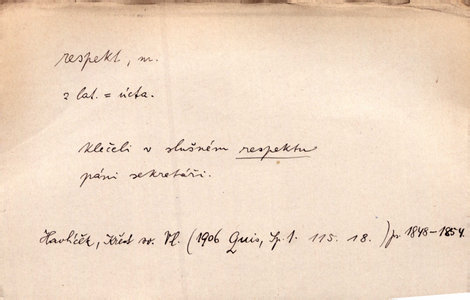 respekt, m.
z lat. = úcta.
klečeli v slušném respektu
páni sekretáři.
Havlíček, Křest sv. Vl. (1906 Quis, Sp. 1. 115. 18.) pr 1848–1854